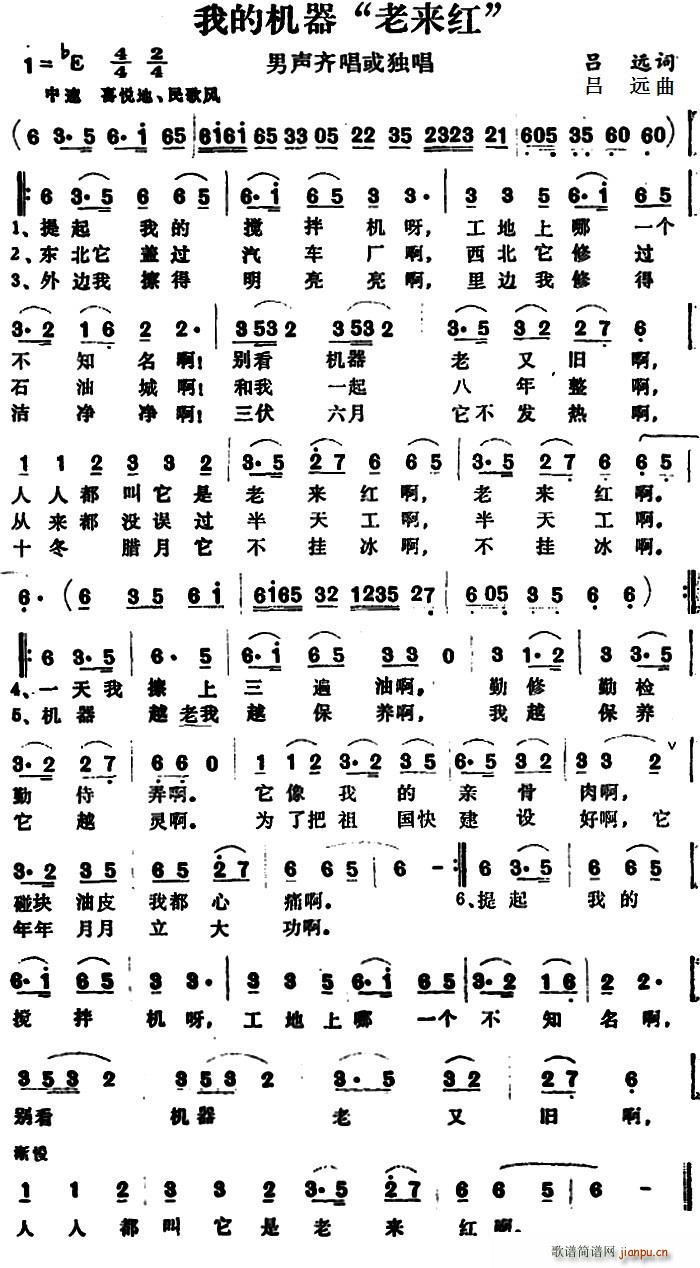 我的机器“老来红”
1=♭E 4/4 2/4 男声齐唱或独唱 吕远词
吕远曲
中速 喜悦地、民歌风
(6 3·5 6·i 65 | 6i6i 65 33 05 22 35 2323 21 | 605 35 60 60)
6 3·5 6 65 | 6·i 65 3 3· | 3 3 5 6·i 65
1、提起我的搅拌机呀，工地上哪一个
2、东北它盖过汽车厂啊，西北它修过
3、外边我擦得明亮亮啊，里边我修得
3·2 16 2 2· | 3532 3532 | 3·5 32 27 6
不知名啊！别看机器老又旧啊，
石油城啊！和我一起八年整啊，
洁净净啊！三伏六月它不发热啊，
1 1 2 3 3 2 | 3·5 27 6 65 | 3·5 27 6 65
人人都叫它是老来红啊，老来红啊。
从来都没误过半天工啊，半天工啊。
十冬腊月它不挂冰啊，不挂冰啊。
6· (6 35 6i | 6i65 32 1235 27 | 605 35 6 6)
6 3·5 6·5 | 6·i 65 33 0 | 3 1·2 3 3·5
4、一天我擦上三遍油啊。勤修勤检
5、机器越老我越保养啊，我越保养
3·2 27 66 0 | 1 1 3·2 32 | 6·5 32 33 2 V
勤侍弄啊。它像我的亲骨肉啊，
它越灵啊。为了把祖国快建设好啊，它
3·2 35 65 27 | 6 65 6 - 6 3·5 66 65
碰块油皮我都心痛啊。6、提起我的
年年月月立大功啊。
6·i 65 3 3· | 3 3 5 6·i 65 | 3·2 16 2 2·
搅拌机呀，工地上哪一个不知名啊，
3532 3532 | 3·5 32 27 6
别看机器老又旧啊，
渐慢
1 1 2 3 3 2 | 3·5 27 6 65 6 -
人人都叫它是老来红啊。
歌谱简谱网 jianpu.cn